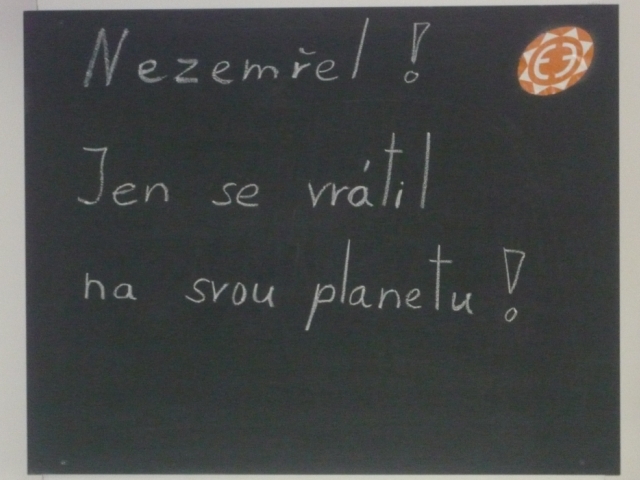 Nezemřel!
Jen se vrátil
na svou planetu!